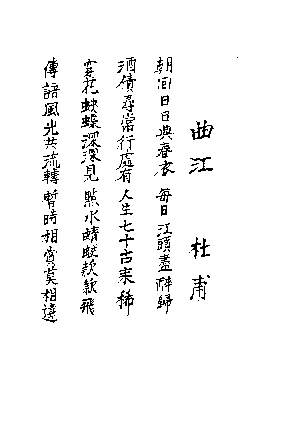 曲江 杜甫
朝回日日典春衣 每日江頭盡醉歸
酒債尋常行處有 人生七十古來稀
穿花蛺蝶深深見 點水蜻蜓款款飛
傳語風光共流轉 暫時相賞莫相違